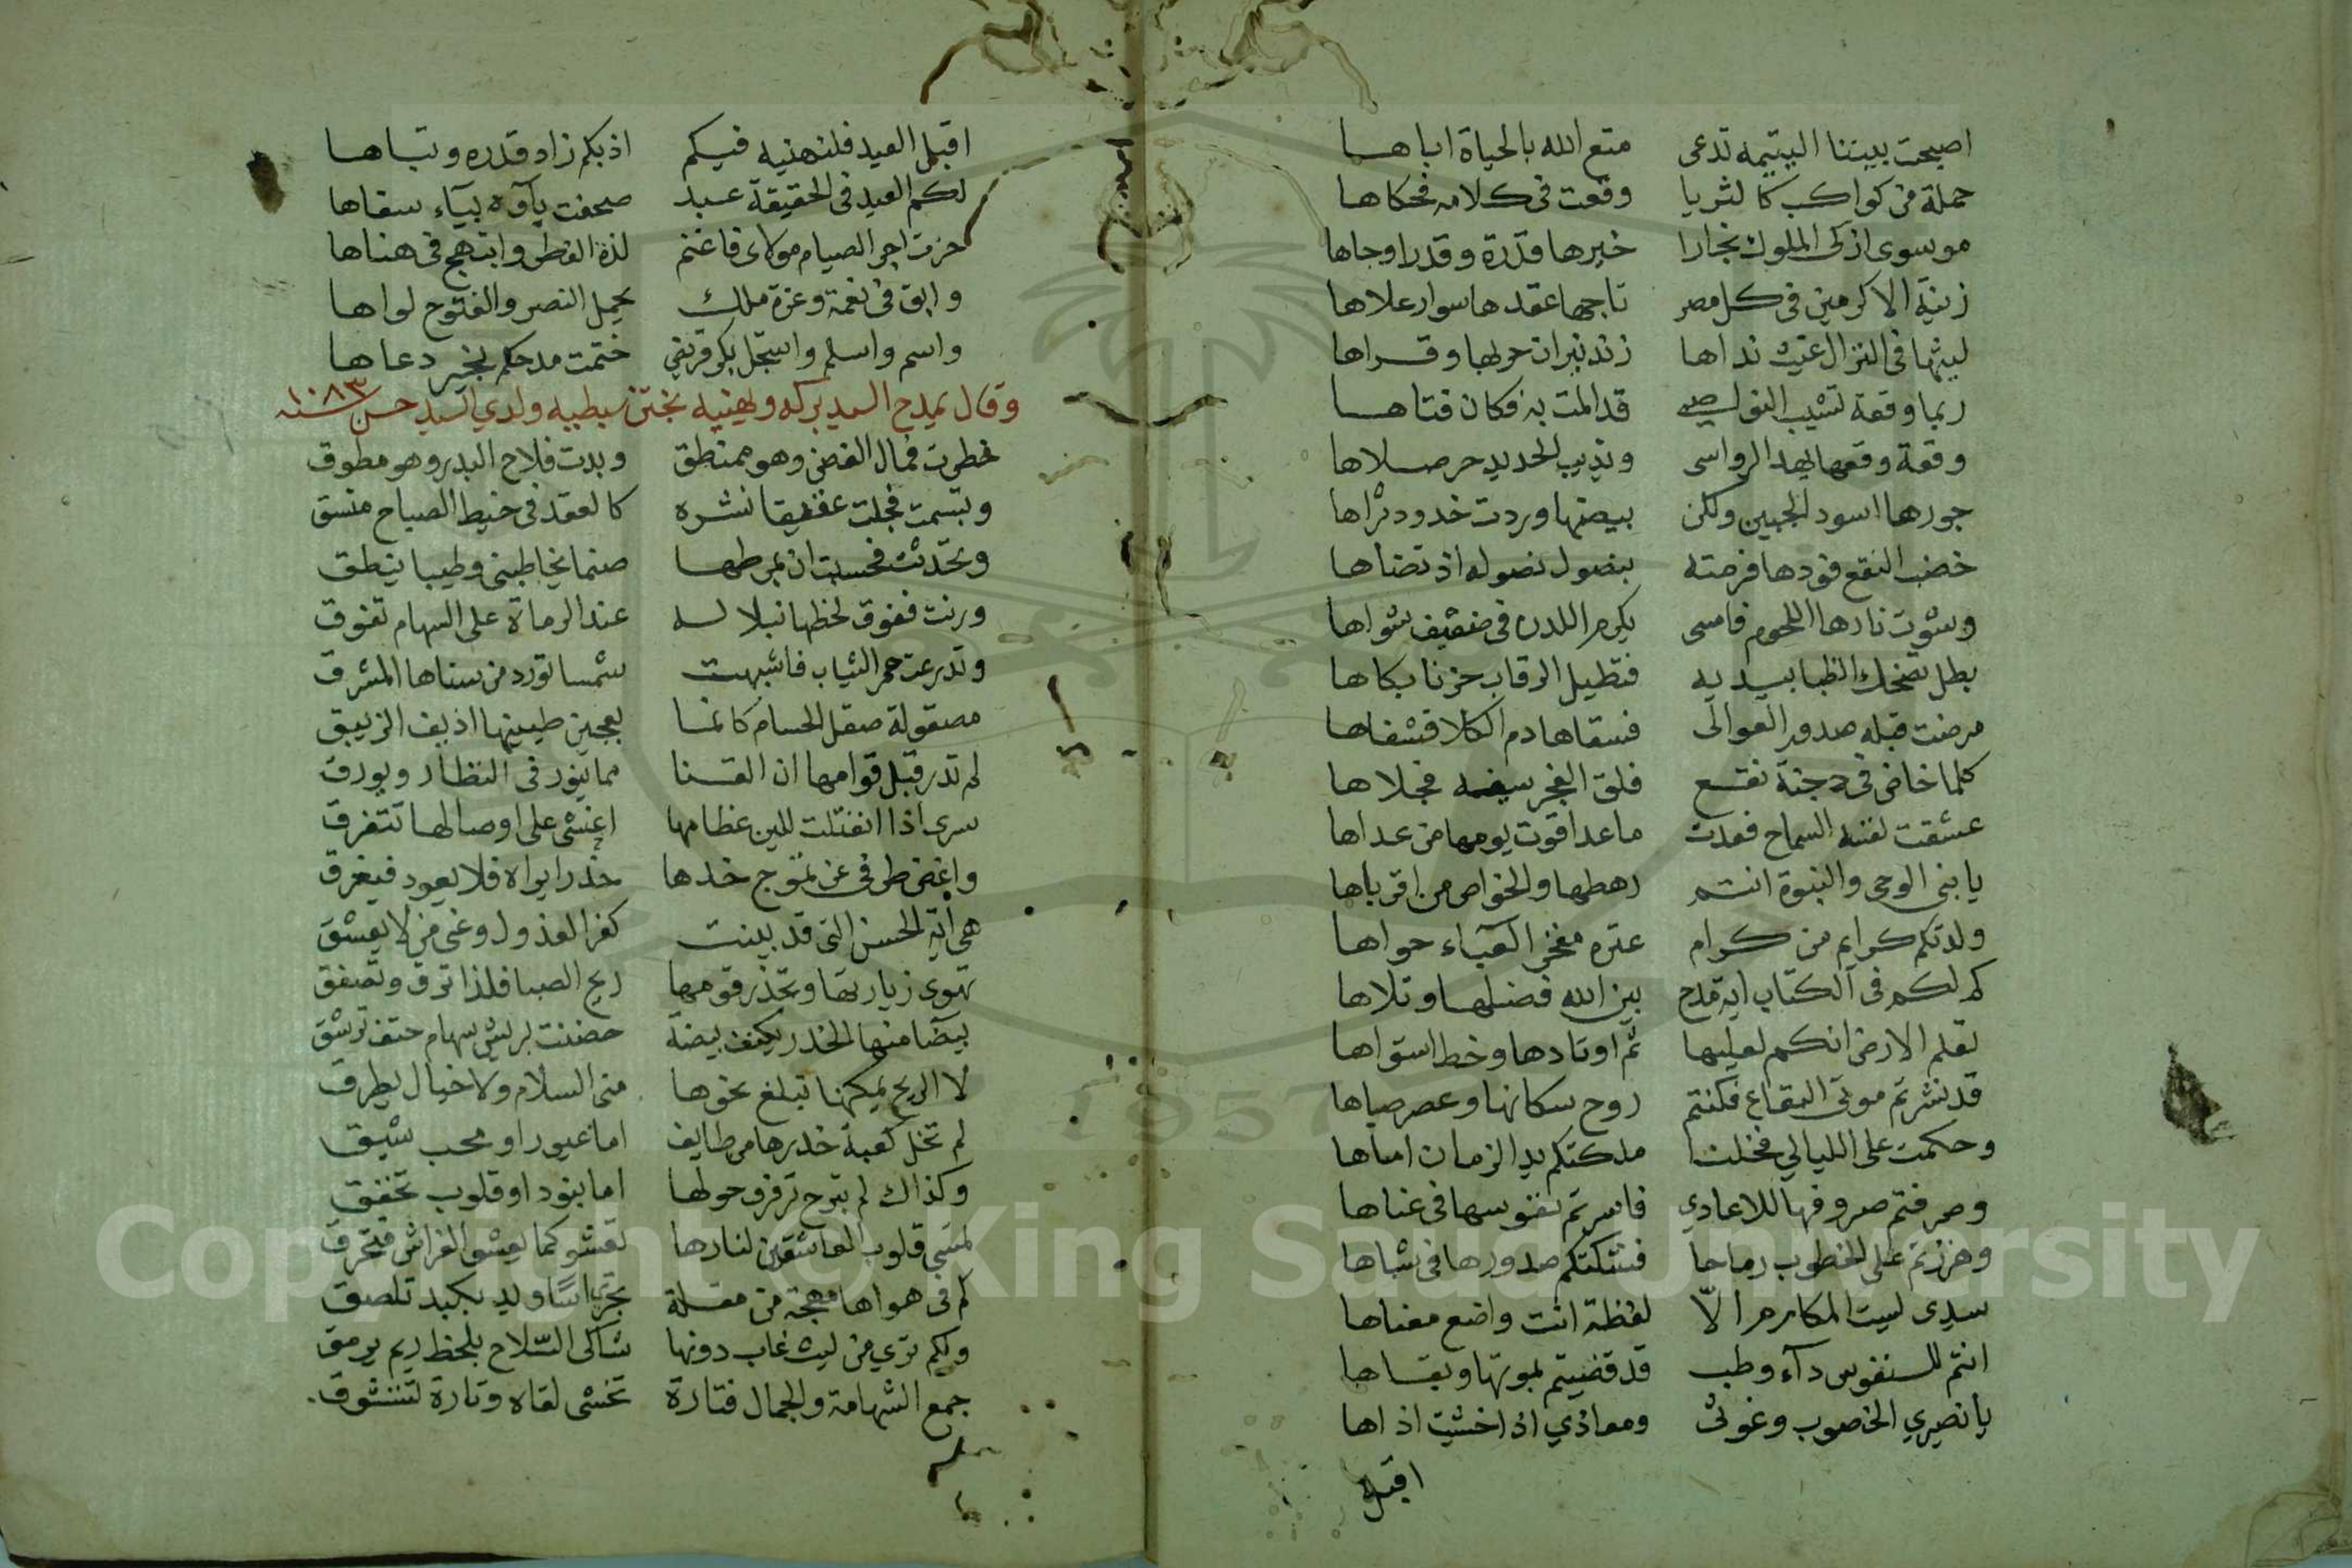 اصبحت بيتنا اليتيمه تدعى متع الله بالحياة اباها
حملة من كواكب كالثريا وقعت فى كلامه فحكاها
موسوى ازكى الملوك نجارا خيرها قدرة وقدرا وجاها
زينة الاكرمين فى كل مصر تاجها عقدها سوار علاها
ليثها فى النزال غيث نداها زند نيران حربها وقراها
ربما وقعة تشيب النواصى قد المت به فكان فتاها
وقعة وقعها يهد الرواسى وتذيب الحديد حر صلاها
جورها اسود الجبين ولكن بيضها وردت خدود ثراها
خضب النقع فودها فرمته بنصول نصوله اذ نضاها
وشوت نارها اللحوم فامسى يكرم اللدن فى ضعيف شواها
بطل تضحك الظبا بيديه فتطيل الرقاب حزنا بكاها
مرضت قبله صدور العوالى فسقاها دم الكلا فشفاها
كلما خاض فى دجنة نقع فلق الفجر سيفه فجلاها
عشقت نفسه السماح فعدت ما عدا قوت يومها من عداها
يا بنى الوحى والنبوة انتم رهطها والخواص من اقرباها
ولدتكم كرايم من كرام عتره مفخر العباء حواها
كم لكم فى الكتاب اية مدح بين الله فضلها وتلاها
تعلم الارض انكم لعليها ثم اوتادها وخط استواها
قد نشرتم موتى البقاع فكنتم روح سكانها وعصر صباها
وحكمتم على الليالي فخلنا ملكتكم يد الزمان اماها
وصرفتم صروفها للاعادي فاسرتم نفوسها فى عناها
وهززتم على الخطوب رماحا فشككتم صدورها فى شباها
سيدى ليت المكارم الّا لفظة انت واضع معناها
انتم للنفوس دآء وطب قد قضيتم بموتها وبقاها
يا نصيري الخصوب وغوثى ومعاذي اذا خشيت اذاها
اقبل
اقبل العيد فلنهنيه فيكم اذ بكم زاد قدره وتباها
لكم العيد فى الحقيقة عبد صحفت يآؤه ببآء سفاها
حزت اجر الصيام مولاى فاغنم لذة الفطر وابتهج فى هناها
وابق فى نعمة وعزة ملك يحمل النصر والفتوح لواها
واسم واسلم واستجل بكر قريض ختمت مدحكم بخير دعاها
وقال يمدح السيد بركه ويهنيه بختن سبطيه ولدي السيد حسن سنه ١٠٨٣
خطرت فمال الغصن وهو ممنطق وبدت فلاح البدر وهو مطوق
وتبسمت فجلت عقيقا نشره كالعقد فى خيط الصباح منسق
وتحدثت فحسبت ان بمرطها صنما يخاطبنى وظبيا ينطق
ورنت ففوق لحظها نبلا له عند الرماة على السهام تفوق
وتدرعت حمر الثياب فاشبهت شمسا تورد من سناها المشرق
مصقولة صقل الحسام كانما بعجين طينها اذيف الزيبق
لم تدر قبل قوامها ان القنا مما ينور فى النظار ويورق
سرى اذا انفتلت للين عظامها اخشى على اوصالها تتفرق
واغض طرفى عن تموج خدها حذرا يراه فلا يعود فيغرق
هى آية الحسن التى قد بينت كفر العذول وغى من لا يعشق
تهوى زيارتها وتحذر قومها ريح الصبا فلذا ترق وتصفق
بيضآ منها الخدر يكنف بيضة حضنت بريش سهام حتف ترشق
لا الريح يمكنها تبلغ نحوها منى السلام ولا خيال يطرق
لم تخل كعبة خدرها من طايف اما غيور او محب شيق
وكذاك لم تبرح ترفرف حولها اما بنود او قلوب تخفق
تمسى قلوب العاشقين لنارها تعشو كما يعشو الفراش فتحرق
كم فى هواها مهجة من مقلة تجرى اسًا ويد بكبد تلصق
ولكم ترى من ليث غاب دونها شاكى السلاح بلحظ ريم يرمق
جمع الشهامة والجمال فتارة تخشى لقاه وتارة تتشوق
Copyright © King Saud University
1957